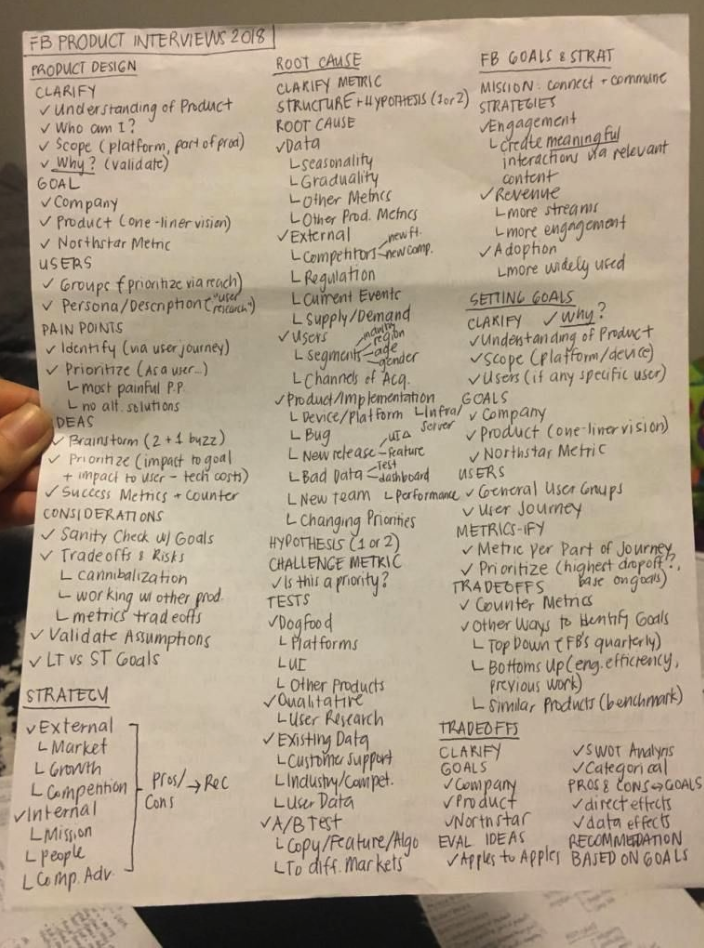 FB PRODUCT INTERVIEWS 2018
PRODUCT DESIGN
CLARIFY
✓ Understanding of Product
✓ Who am I?
✓ Scope (platform, part of prod)
✓ Why? (validate)
GOAL
✓ Company
✓ Product (one-liner vision)
✓ Northstar Metric
USERS
✓ Groups (prioritize via reach)
✓ Persona/Description ("user research")
PAIN POINTS
✓ Identify (via user journey)
✓ Prioritize (As a user...)
└ most painful P.P.
└ no alt. solutions
IDEAS
✓ Brainstorm (2+1 buzz)
✓ Prioritize (impact to goal
+ impact to user - tech costs)
✓ Success Metrics + Counter
CONSIDERATIONS
✓ Sanity Check w/ Goals
✓ Tradeoffs & Risks
└ cannibalization
└ working w/ other prod.
└ metrics tradeoffs
✓ Validate Assumptions
✓ LT vs ST Goals
STRATEGY
✓ External
└ Market
└ Growth
└ Competition
✓ Internal
└ Mission
└ people
└ Comp. Adv.
Pros/Cons → Rec
ROOT CAUSE
CLARIFY METRIC
STRUCTURE + HYPOTHESIS (1 or 2)
ROOT CAUSE
✓ Data
└ Seasonality
└ Graduality
└ Other Metrics
└ Other Prod. Metrics
✓ External
└ Competitors - new ft. - new comp.
└ Regulation
└ Current Events
└ Supply/Demand
✓ Users
└ Segments - region - age - gender
└ Channels of Acq.
✓ Product/Implementation
└ Device/Platform └ Infra/Server
└ Bug
└ New release - UI Δ - feature
└ Bad Data - Test - dashboard
└ New team └ Performance
└ Changing Priorities
HYPOTHESIS (1 or 2)
CHALLENGE METRIC
✓ Is this a priority?
TESTS
✓ Dogfood
└ Platforms
└ UI
└ Other Products
✓ Qualitative
└ User Research
✓ Existing Data
└ Customer Support
└ Industry/Compet.
└ User Data
✓ A/B Test
└ Copy/Feature/Algo
└ To diff. Markets
FB GOALS & STRAT
MISSION: connect + commune
STRATEGIES
✓ Engagement
└ create meaningful
interactions via relevant
content
✓ Revenue
└ more streams
└ more engagement
✓ Adoption
└ more widely used
SETTING GOALS
CLARIFY ✓ Why?
✓ Understanding of Product
✓ Scope (platform/device)
✓ Users (if any specific user)
GOALS
✓ Company
✓ Product (one-liner vision)
✓ Northstar Metric
USERS
✓ General User Groups
✓ User Journey
METRICS-IFY
✓ Metric per Part of Journey
✓ Prioritize (highest dropoff?,
base on goals)
TRADEOFFS
✓ Counter Metrics
✓ Other Ways to Identify Goals
└ Top Down (FB's quarterly)
└ Bottoms Up (eng. efficiency,
previous work)
└ Similar Products (benchmark)
TRADEOFFS
CLARIFY
GOALS
✓ Company
✓ Product
✓ Northstar
EVAL IDEAS
✓ Apples to Apples
✓ SWOT Analysis
✓ Categorical
PROS & CONS ↔ GOALS
✓ direct effects
✓ data effects
RECOMMENDATION
BASED ON GOALS